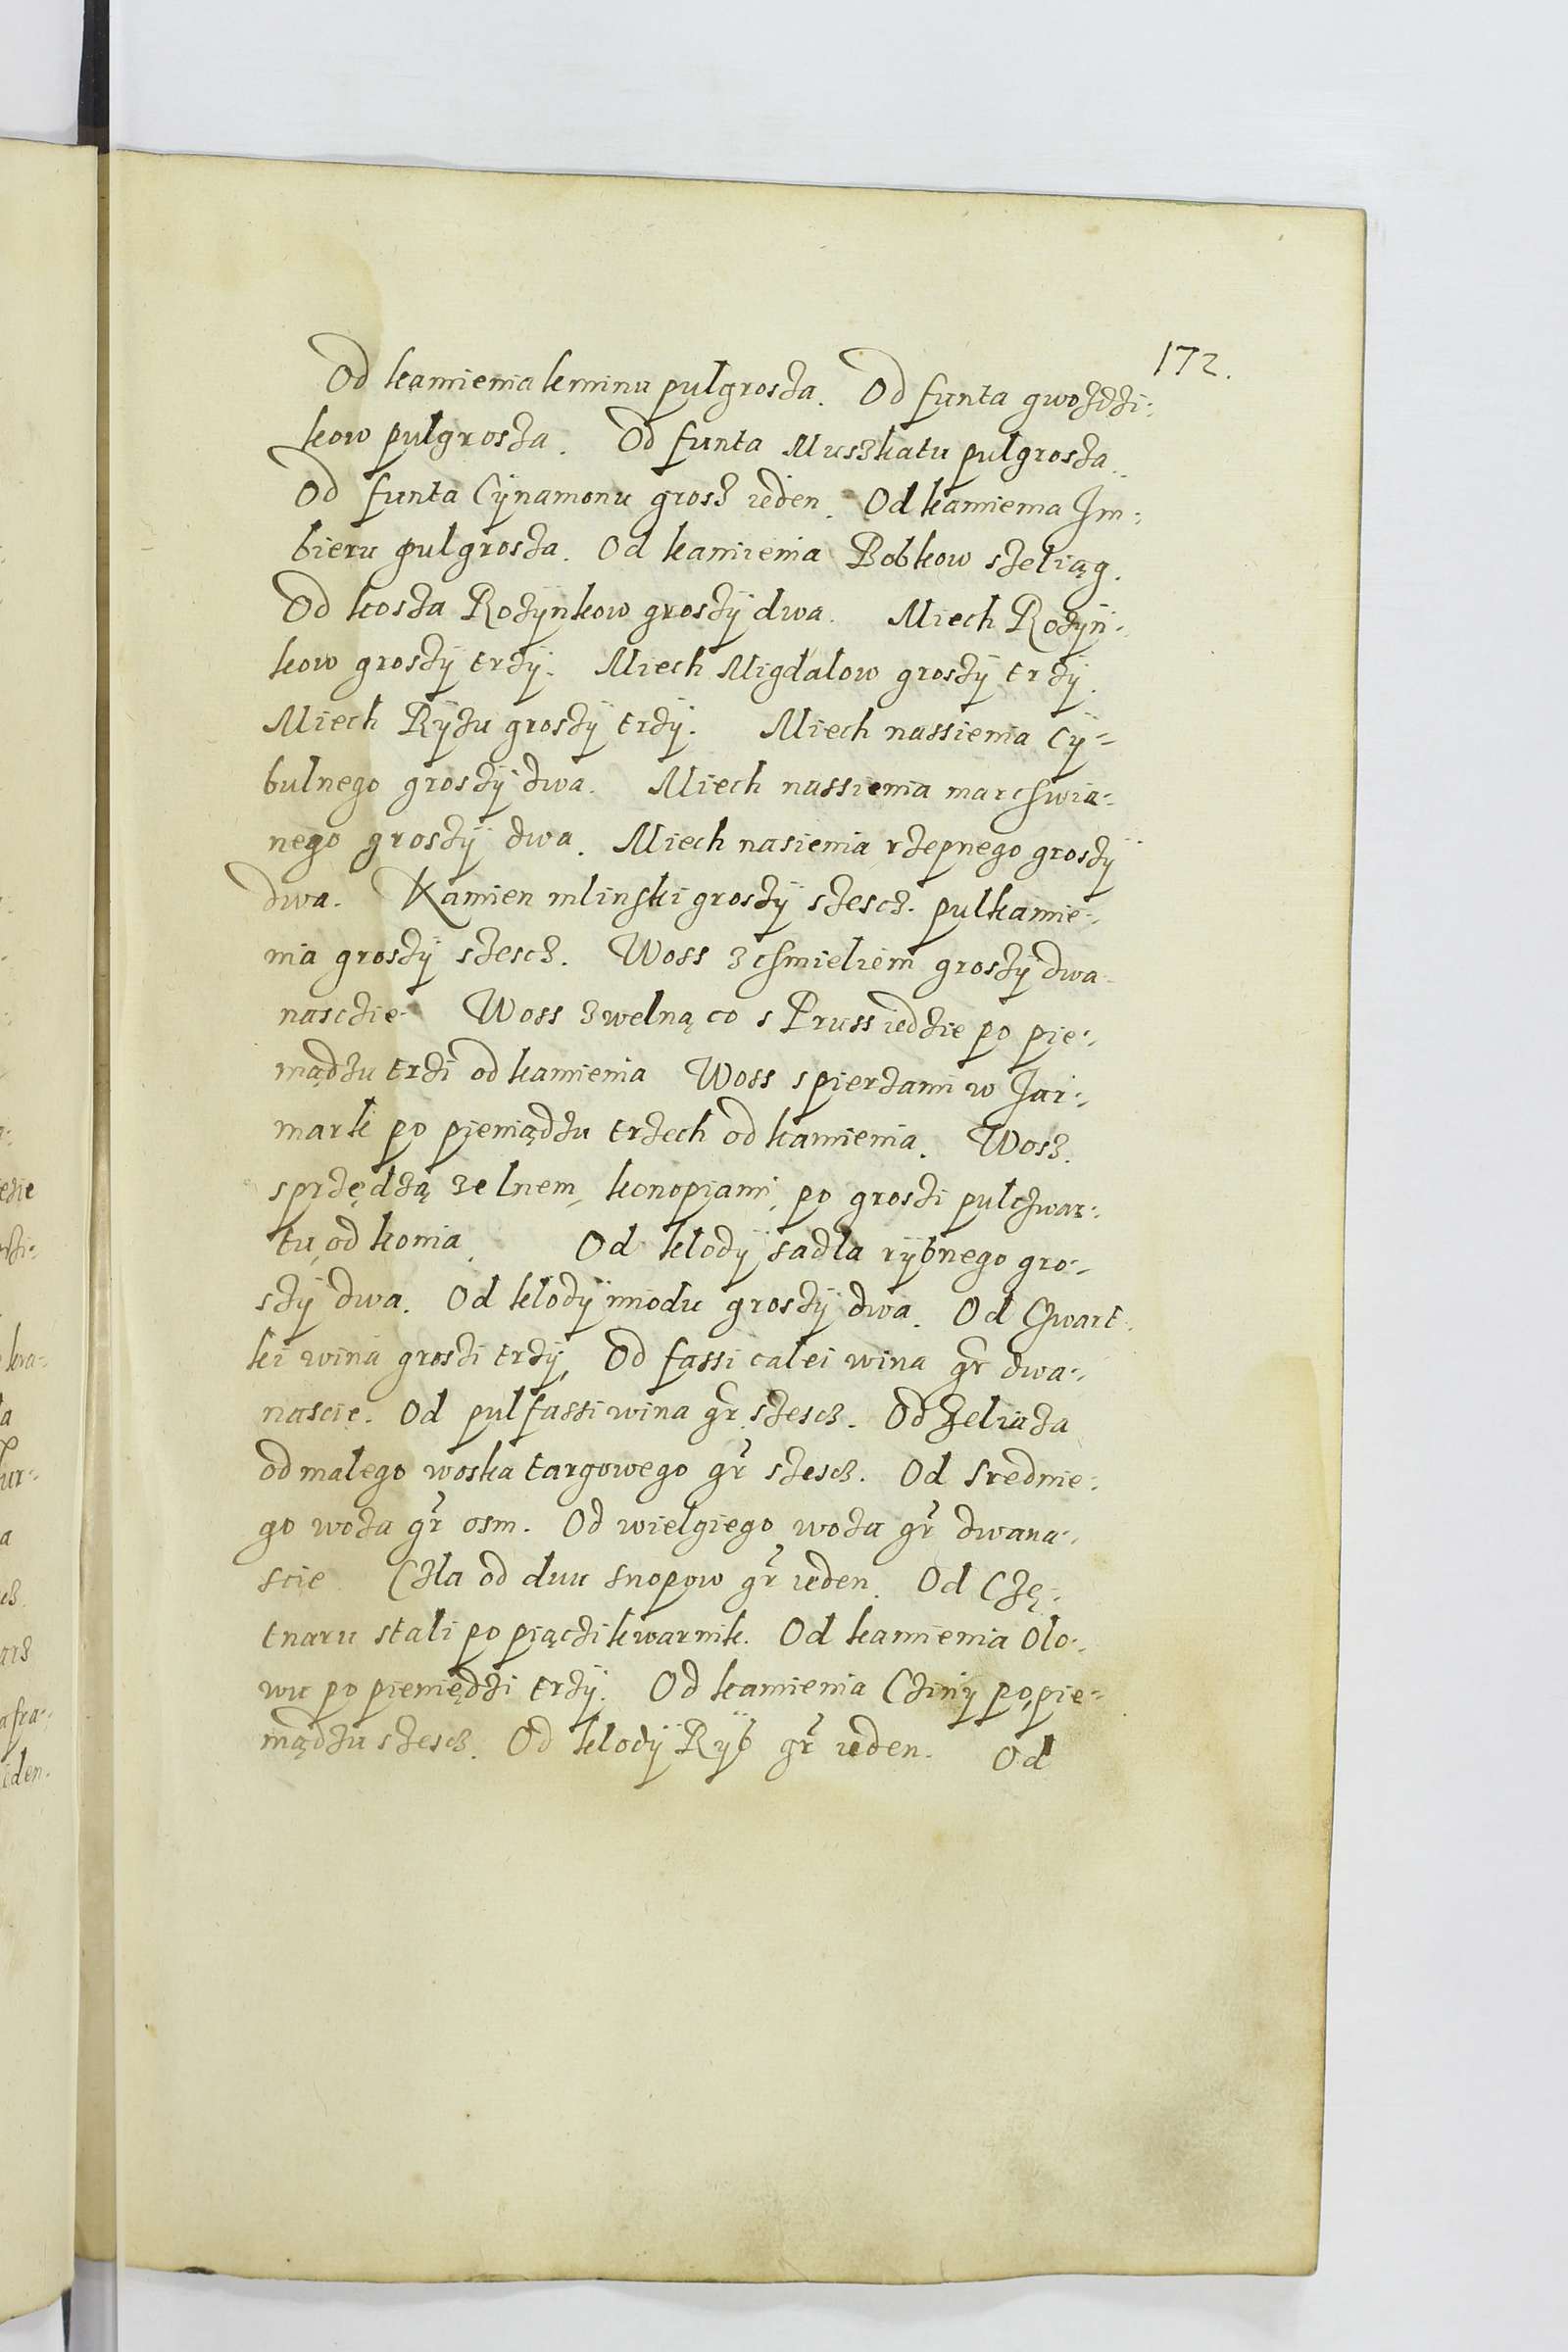 172.
Od kamienia kminu pulgrosza. Od funta gwozdzi-
kow pulgrosza. Od funta Muszkatu pulgrosza.
Od funta Cÿnamonu grosz ieden. Od kamienia Im-
bieru pulgrosza. Od kamienia Bobkow szeliąg.
Od kosza Rozÿnkow groszÿ dwa. Miech Rozÿn-
kow groszÿ trzÿ. Miech Migdalow groszÿ trzÿ.
Miech Rÿzu groszÿ trzÿ. Miech nassienia Cÿ-
bulnego groszÿ dwa. Miech nassienia marchwia-
nego groszÿ dwa. Miech nasienia rzepnego groszÿ
dwa. Kamien mlinski groszÿ szescz. pulkamie-
nia groszÿ szescz. Woss z chmieliem groszÿ dwa
nasczie. Woss z welną co s Pruss iedzie po pie-
niądzu trzi od kamienia Woss s pierzami w Jar-
mark po pieniądzu trzech od kamienia. Wosz
s przędzą ze lnem, konopiami, po groszi pulczwar-
tu, od konia. Od klodÿ sadla rÿbnego gro-
szÿ dwa. Od klodÿ miodu groszÿ dwa. Od Czwart-
ki wina groszi trzÿ, Od fassi calei wina gr dwa-
nascie. Od pulfassi wina gr szescz. Od Zeliaza
od malego woska targowego gr szescz. Od srednie-
go woza gr osm. Od wielgiego woza gr dwana-
scie Czla od dwu snopow gr ieden. Od Czę-
tnaru stali po piączi kwarnik. Od kamienia Olo-
wu po pieniędzi trzÿ. Od kamienia Czinÿ po pie-
niądzu szescz. Od klodÿ Rÿb gr ieden. Od